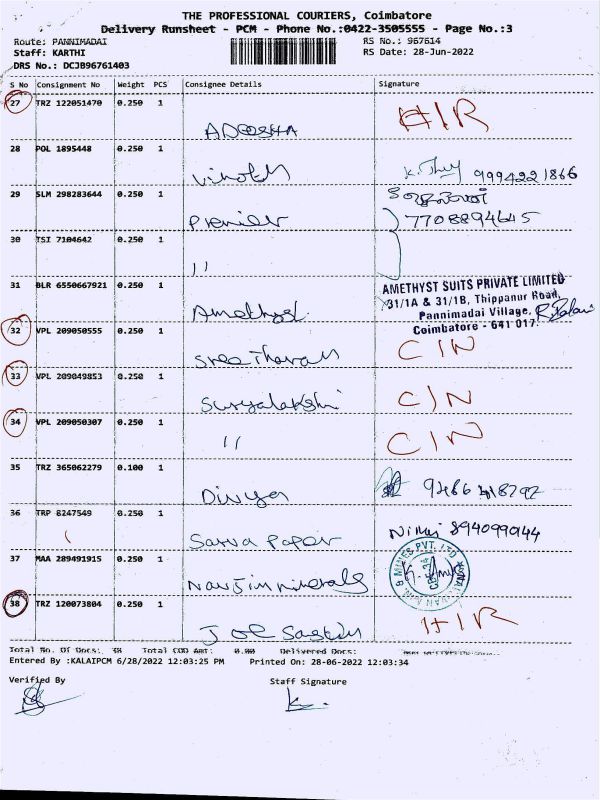 THE PROFESSIONAL COURIERS, Coimbatore
Delivery Runsheet - PCM - Phone No.:0422-3505555 - Page No.:3
Route: PANNIMADAI RS No.: 967614
Staff: KARTHI RS Date: 28-Jun-2022
DRS No.: DCJB96761403
S No Consignment No Weight PCS Consignee Details Signature
27 TRZ 122051470 0.250 1 H/R
28 POL 1895448 0.250 1 9994221866
Vinoth
29 SLM 298283644 0.250 1
Premier 7708894645
30 TSI 7104642 0.250 1
11
31 BLR 6550667921 0.250 1 AMETHYST SUITS PRIVATE LIMITED
31/1A & 31/1B, Thippanur Road,
Amethyst Pannimadai Village,
Coimbatore - 641 017.
32 VPL 209050555 0.250 1 C/N
Sreetharan
33 VPL 209049853 0.250 1 C/N
Suryalakshi
34 VPL 209050307 0.250 1 C/N
11
35 TRZ 365062279 0.100 1
Divya
36 TRP 8247549 0.250 1 8940990144
Sarva Paper
37 MAA 289491915 0.250 1 MINES PVT. LTD
Navjinminerals
38 TRZ 120073804 0.250 1 H/R
Joe Sastin
Total No. Of Docs: 38 Total COD Amt: 0.00 Delivered Docs:
Entered By :KALAIPCM 6/28/2022 12:03:25 PM Printed On: 28-06-2022 12:03:34
Verified By Staff Signature